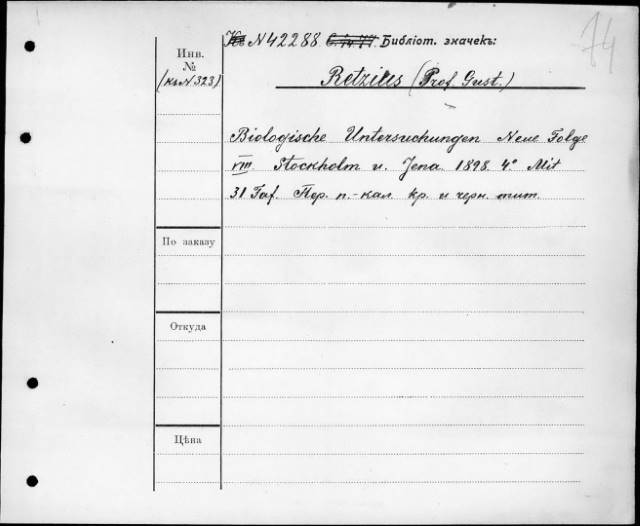 N 42288. Библіот. значекъ:
74
Инв.
№
(кн N 323)
Retzius (Prof. Gust.)
Biologische Untersuchungen Neue Folge
VIII. Stockholm u. Jena 1898. 4° Mit
31 Taf. Пер. п.-кал. кр. и черн. тит.
По заказу
Откуда
Цѣна